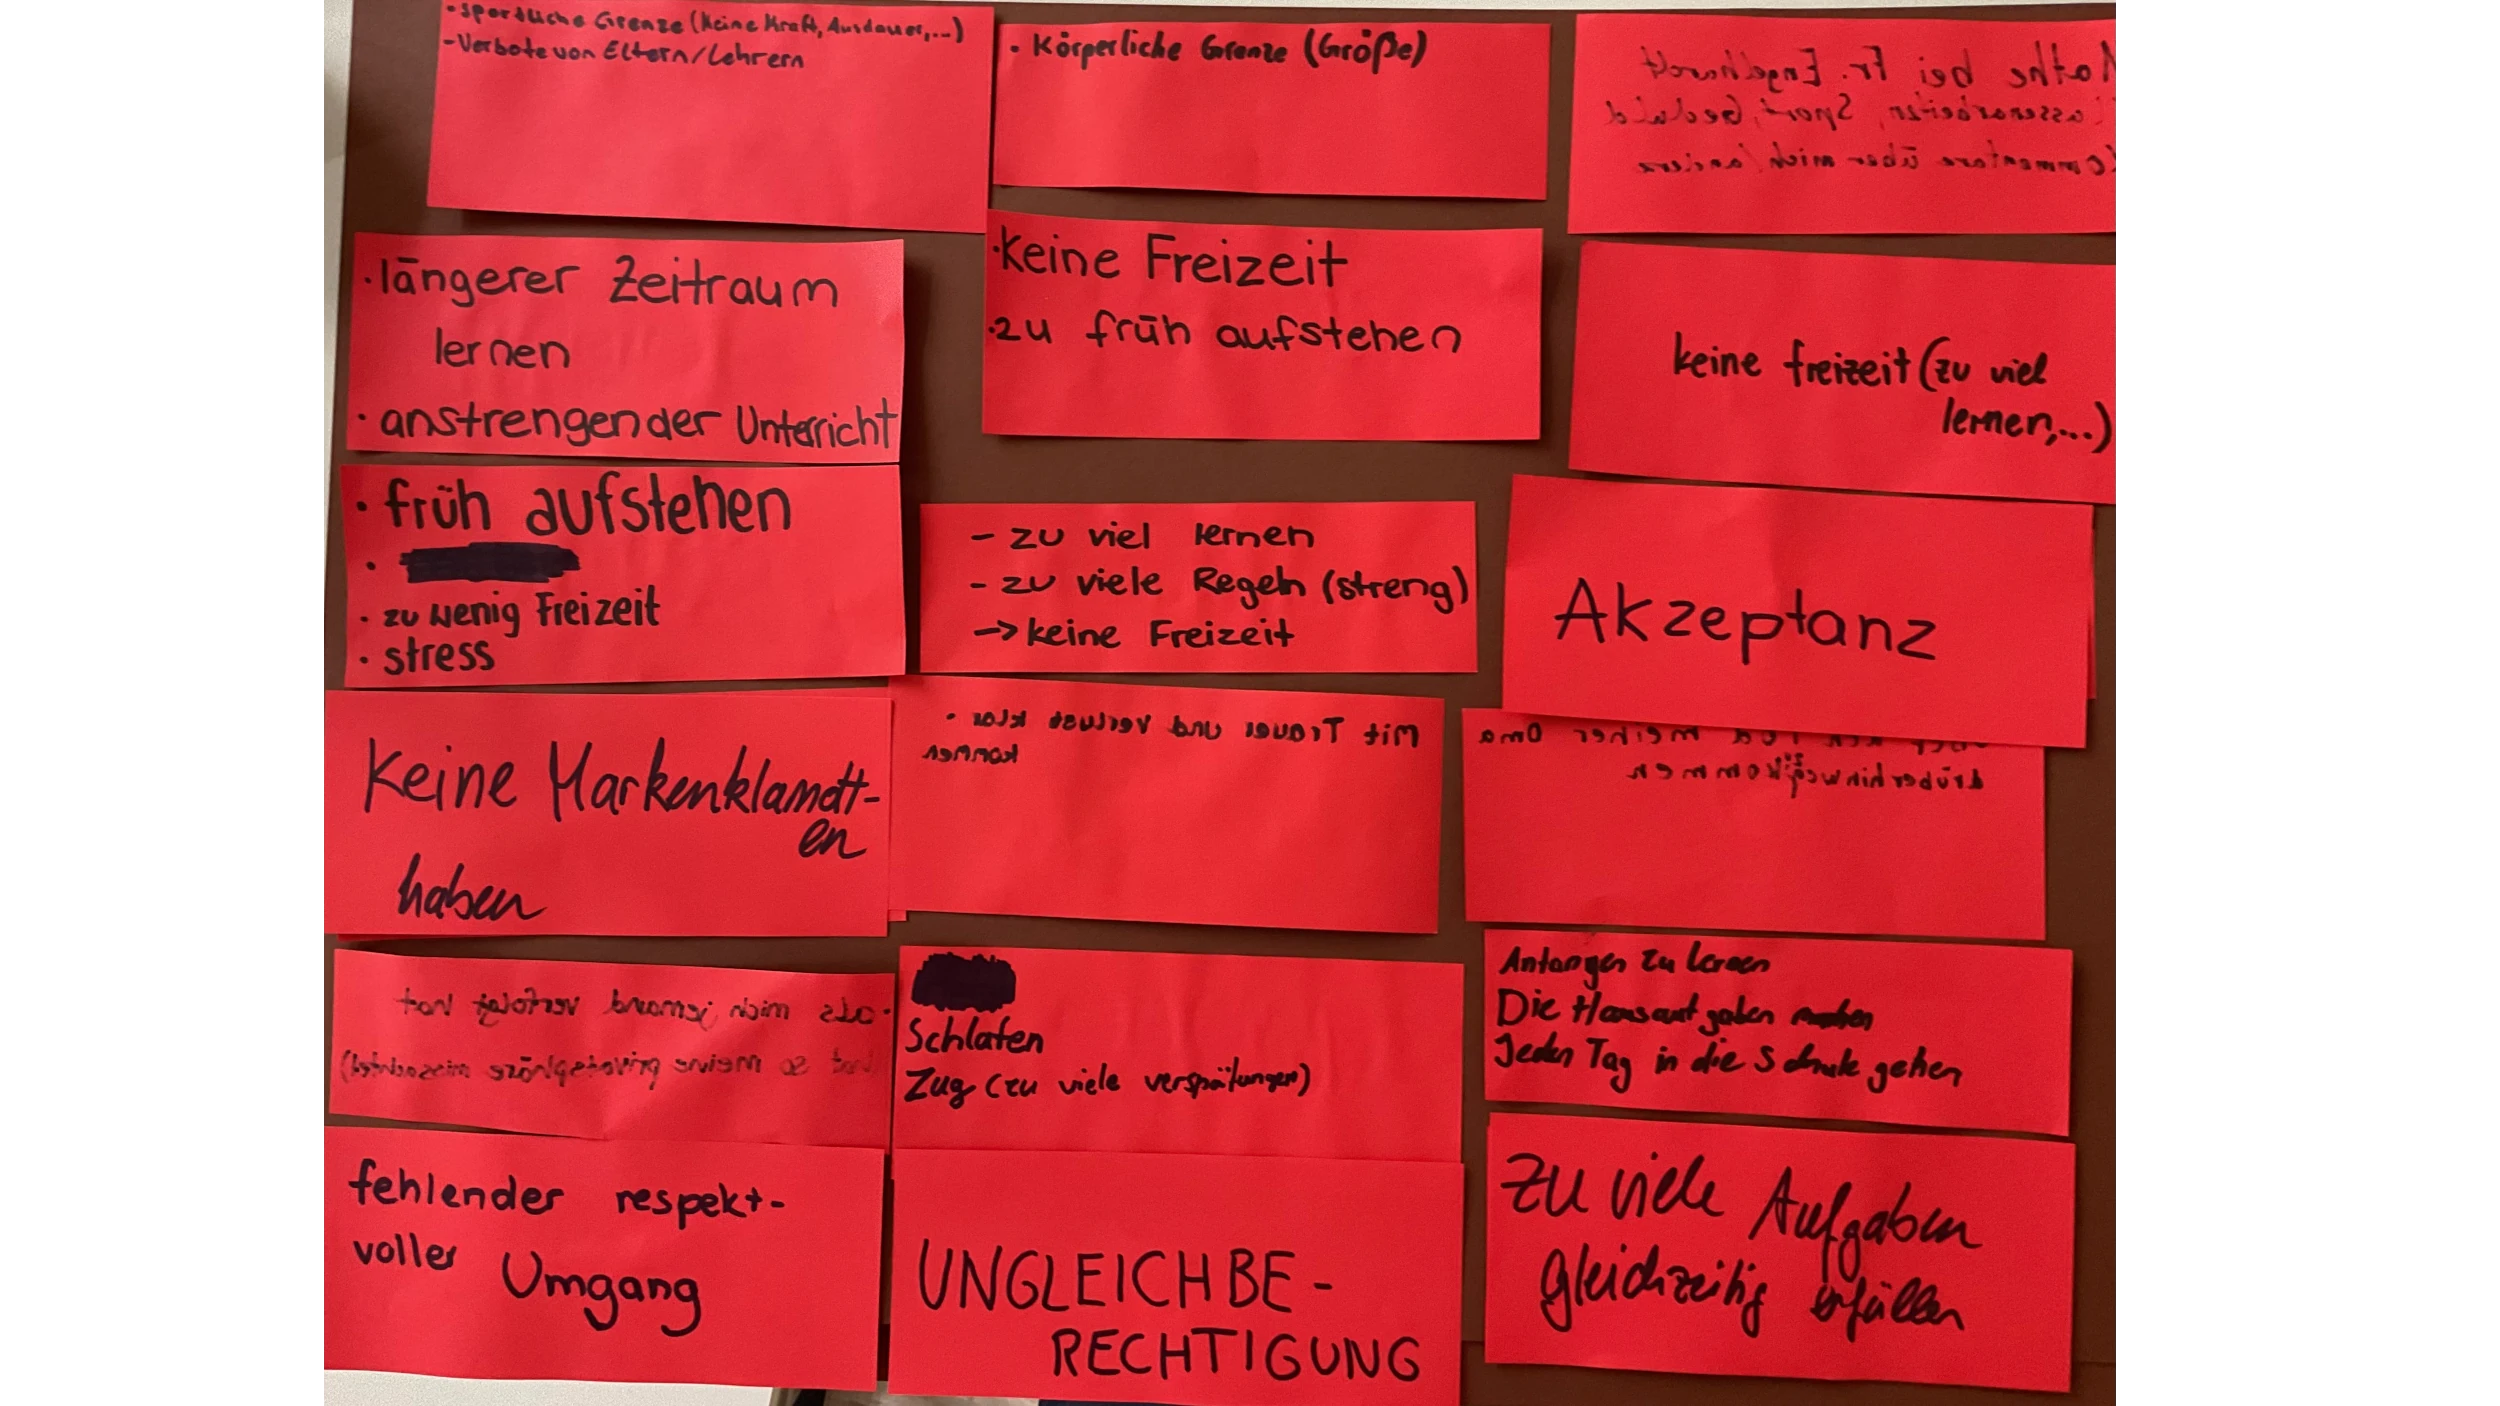 • sportliche Grenze (keine Kraft, Ausdauer,...)
- Verbote von Eltern/Lehrern
• Körperliche Grenze (Größe)
Mathe bei Fr. Engelhardt
Klassenarbeiten, Sport, Geduld
Kommentare über mich/andere
• längerer Zeitraum
lernen
• anstrengender Unterricht
• keine Freizeit
• zu früh aufstehen
keine freizeit (zu viel
lernen,...)
• früh aufstehen
• zu wenig Freizeit
• stress
- zu viel lernen
- zu viele Regeln (streng)
→ keine Freizeit
Akzeptanz
Keine Markenklamott-
en
haben
Mit Trauer und Verlust klar •
kommen
meiner Oma
drüber hinwegzukommen
• als mich jemand verfolgt hat
hat so meine privatsphäre missachtet)
Schlafen
Zug (zu viele verspätungen)
Anfangen zu lernen
Die Hausaufgaben machen
Jeden Tag in die Schule gehen
fehlender respekt-
voller Umgang
UNGLEICHBE-
RECHTIGUNG
Zu viele Aufgaben
gleichzeitig erfüllen